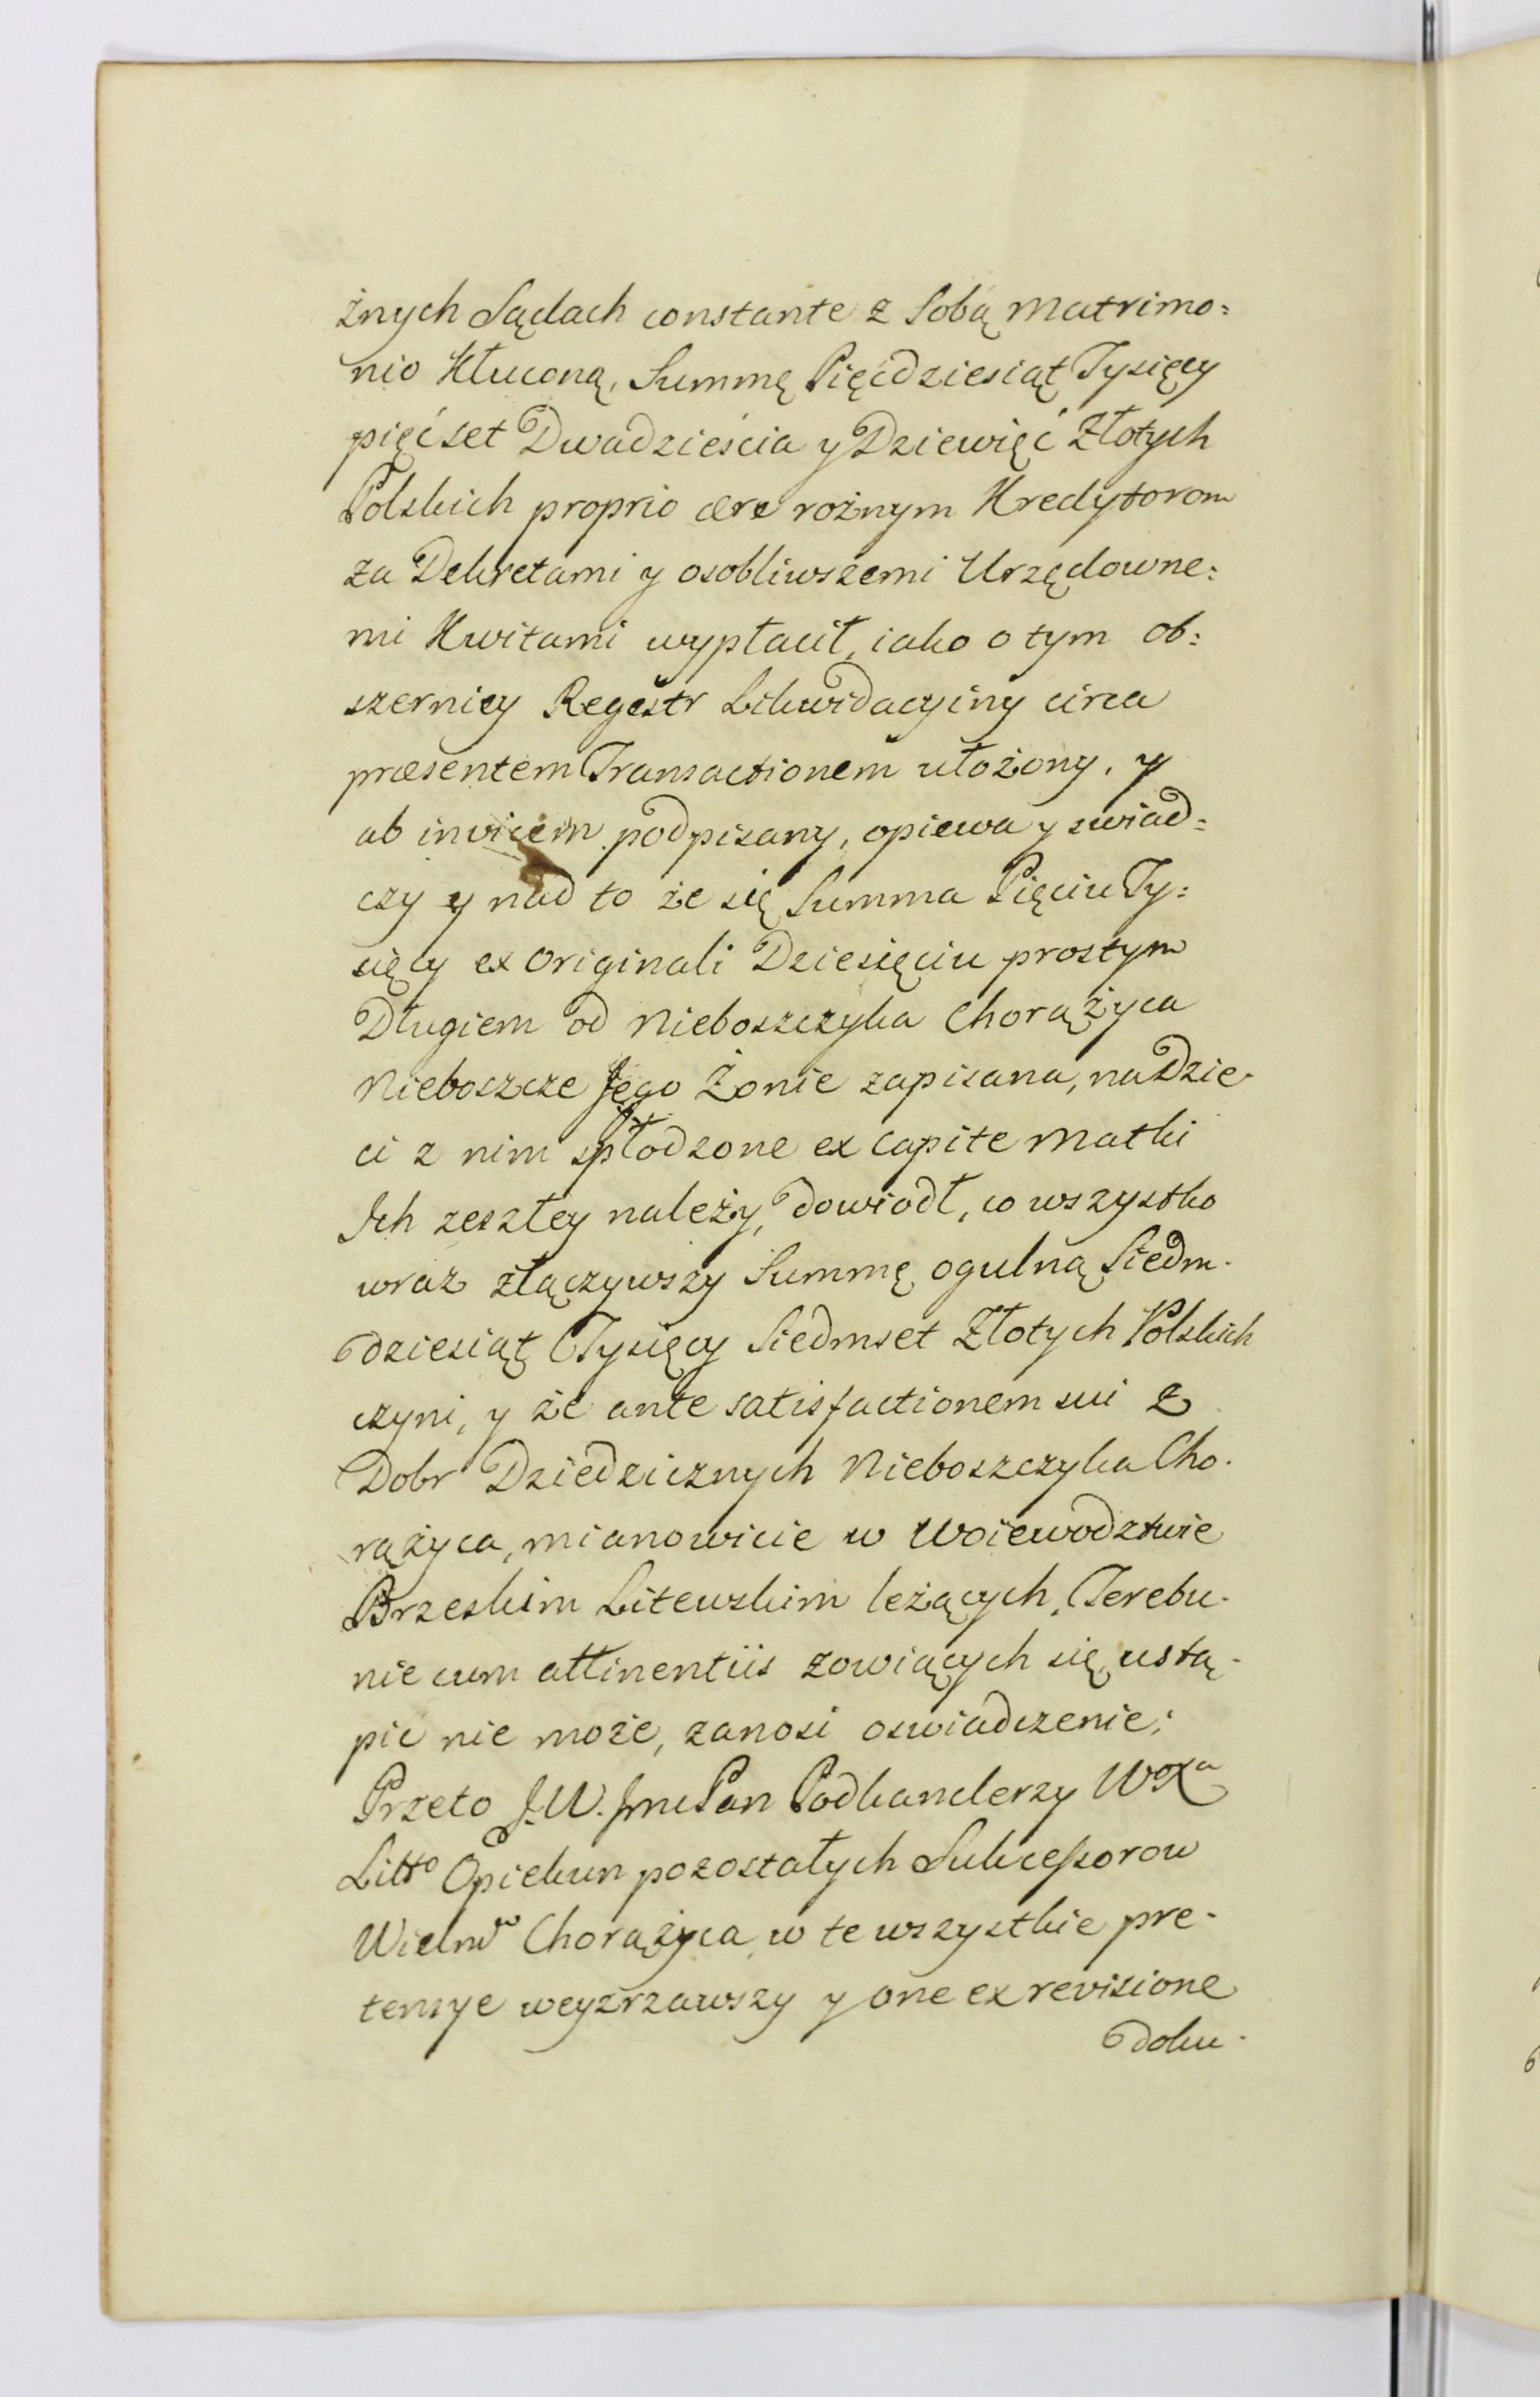 żnych Sądach constante z Sobą Matrimo=
nio Kłuconą, Summę Pięćdziesiąt Tysięcy
pięćset Dwadzieścia y Dziewięć Złotych
Polskich proprio ære rożnym Kredytorom
za Dekretami y osobliwszemi Urzędowne=
mi Kwitami wypłacił, iako o tym ob=
szerniey Regestr Likwidacyiny circa
præsentem Transactionem ułożony, y
ab invicem podpisany, opiewa y swiad=
czy y nad to że się Summa Pięciu Ty=
sięcy ex Originali Dziesięciu prostym
Długiem od Nieboszczyka Chorążyca
Nieboszcze Jego Żonie zapisana, na Dzie-
ci z nim spłodzone ex Capite Matki
Ich zeszłey należy, dowiodł, co wszystko
wraz złączywszy Summę ogulną Siedm-
dziesiąt Tysięcy Siedmset Złotych Polskich
czyni, y że ante satisfactionem sui z
Dobr Dziedzicznych Nieboszczyka Cho-
rążyca, mianowicie w Woiewodztwie
Brzeskim Litewskim leżących, Terebu-
nie cum attinentiis zowiących się, ustą-
pić nie może, zanosi oswiadczenie;
Przeto J.W. Jmć Pan Podkanclerzy WXa
Littº Opiekun pozostałych Sukcessorow
Wielmº Chorążyca w te wszystkie pre-
tensye weyzrzawszy y one ex revisione
doku-